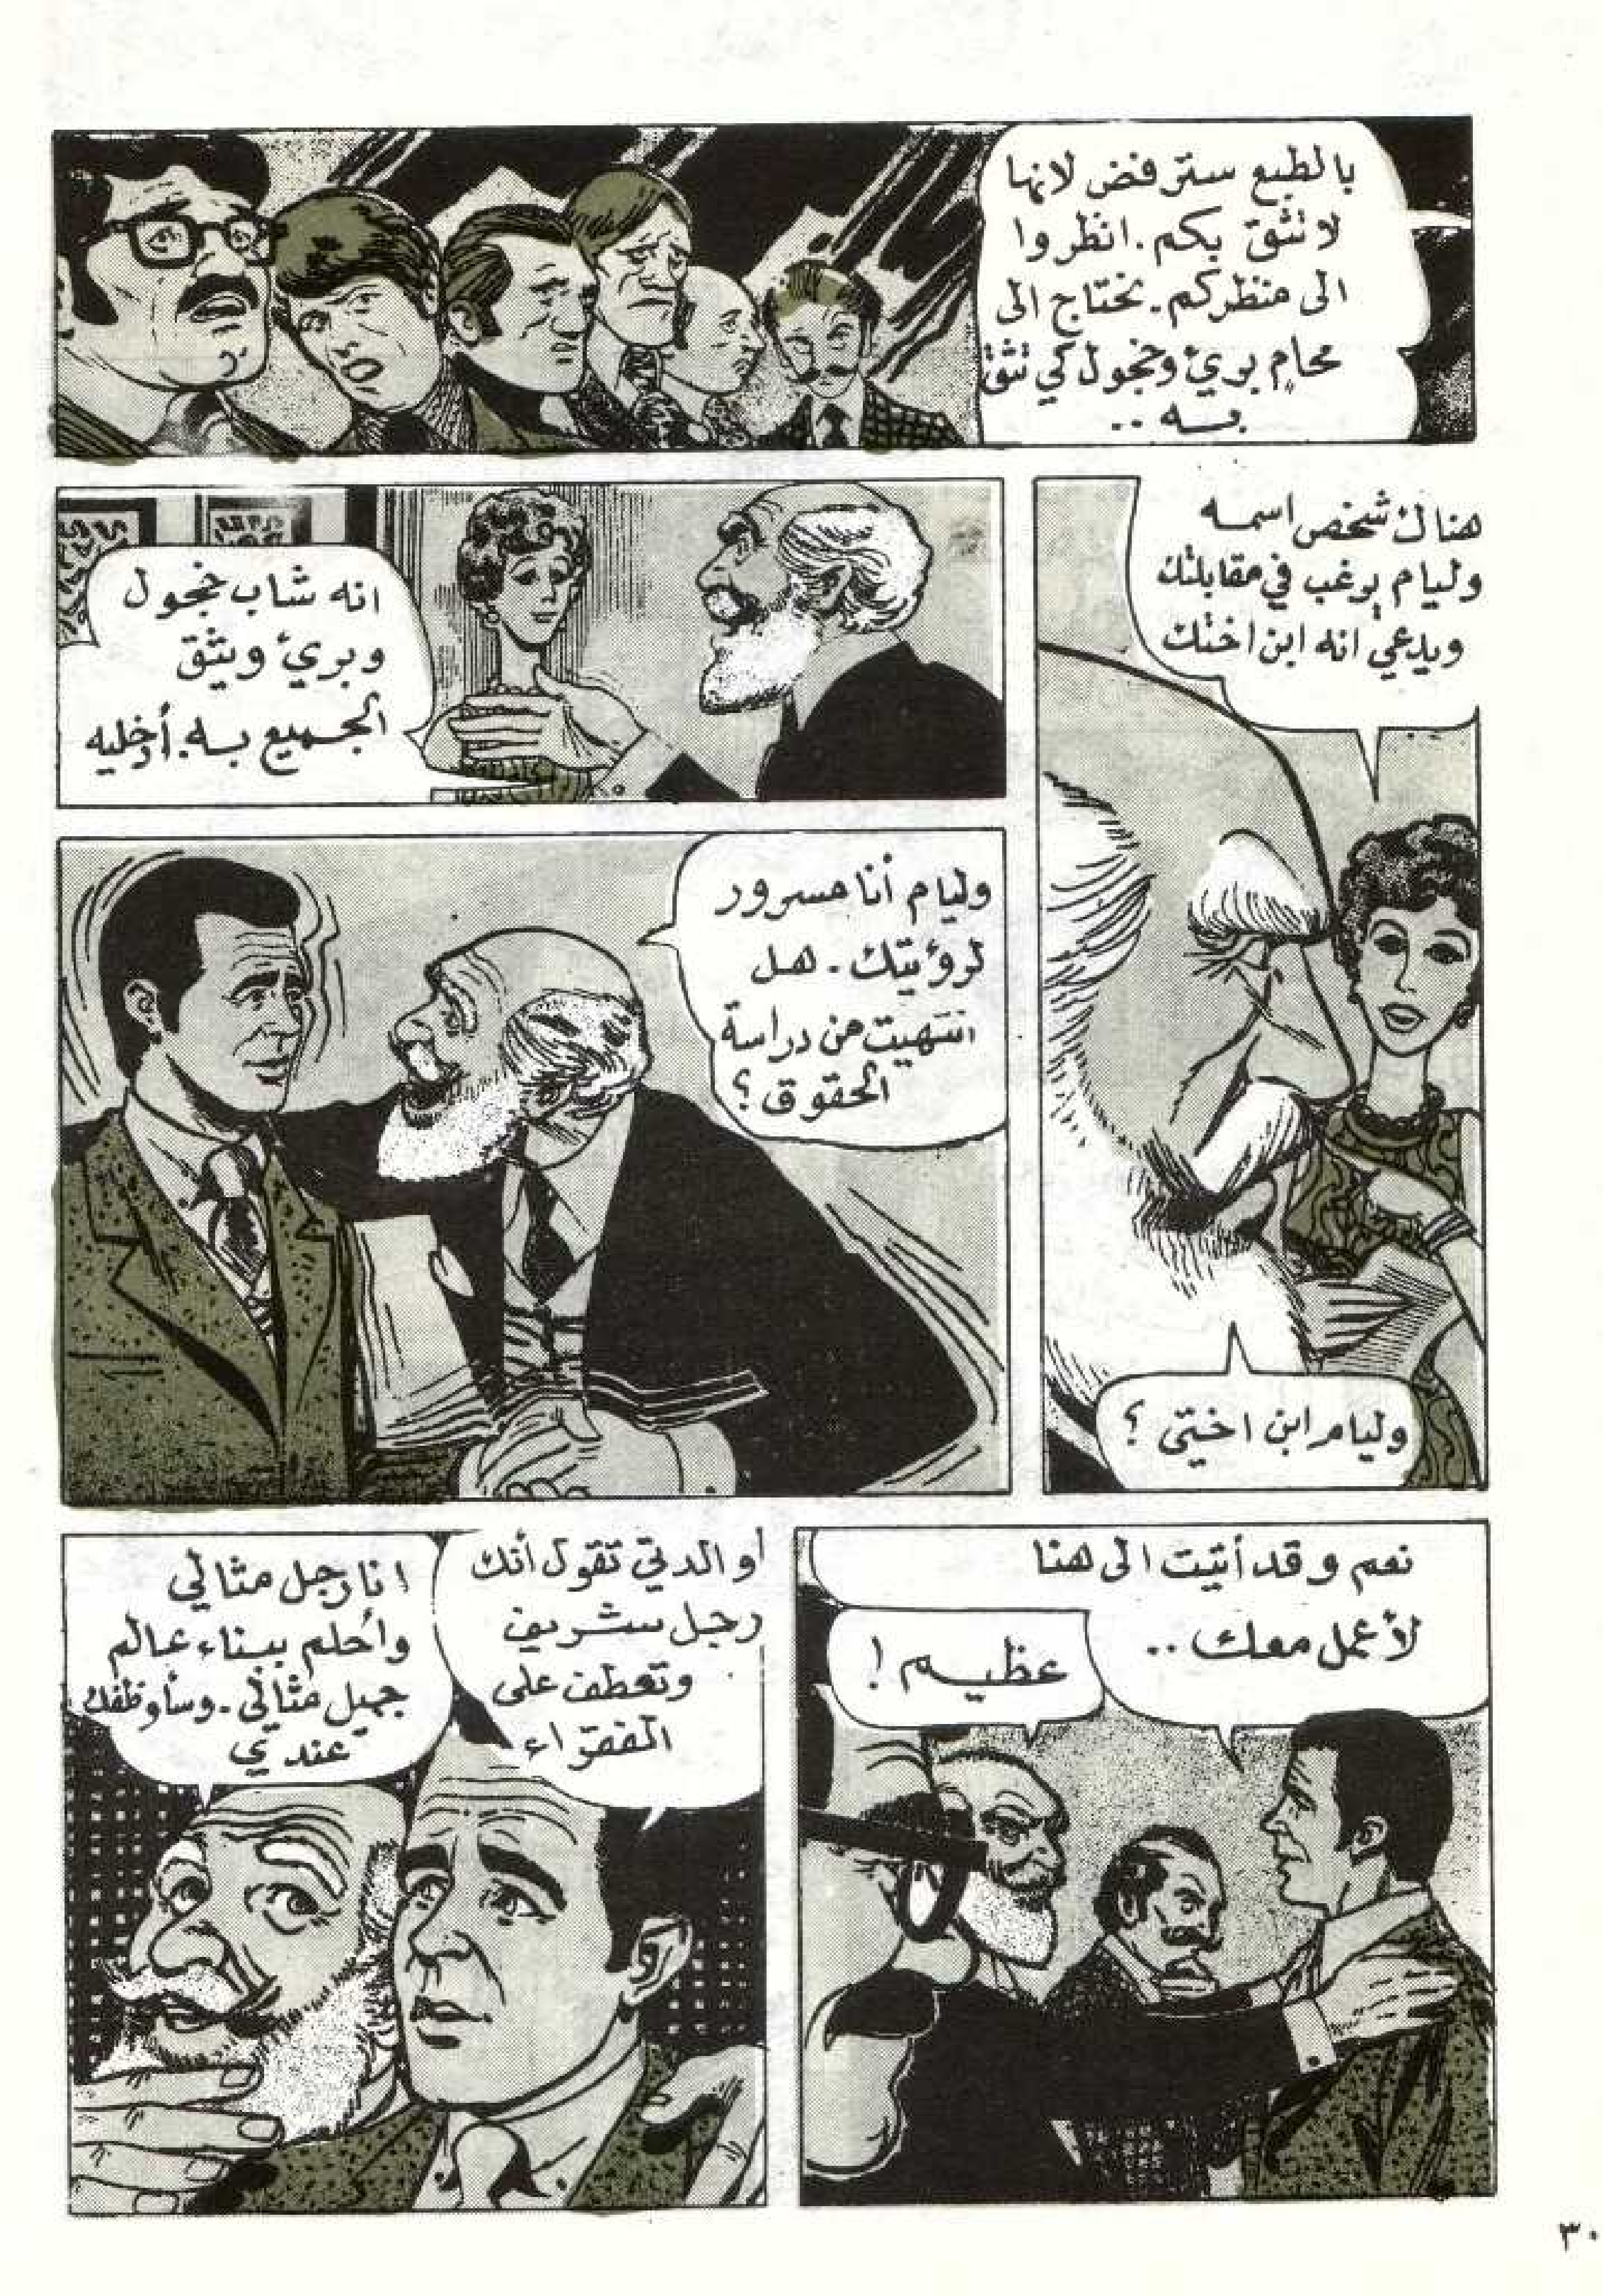 بالطبع سترفض لانها
لا تثق بكم. انظروا
الى منظركم. نحتاج الى
محامٍ بريئ وخجول كي تثق
به ..
هناك شخص اسمه
وليام يرغب في مقابلتك
ويدعي انه ابن اختك
وليام ابن اختي ؟
انه شاب خجول
وبريئ ويثق
الجميع به. أدخليه
وليام أنا مسرور
لرؤيتك. هل
انتهيت من دراسة
الحقوق ؟
نعم وقد أتيت الى هنا
لأعمل معك ..
عظيم !
او الدتي تقول أنك
رجل شريف
وتعطف على
الفقراء
انا رجل مثالي
وأحلم ببناء عالم
جميل مثالي. وسأوظفك
عندي
٣٠